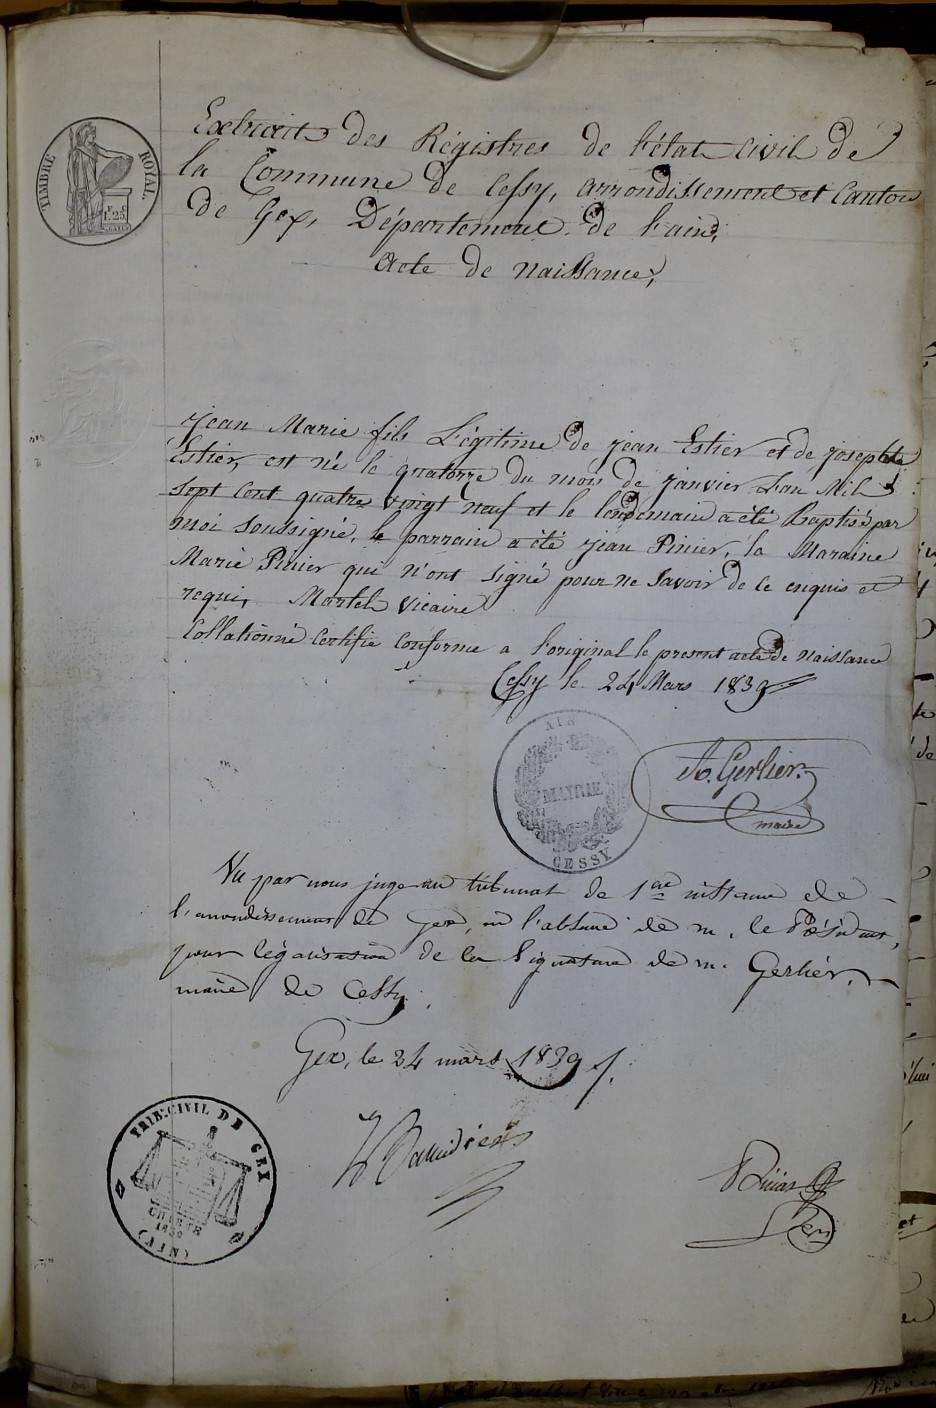 TIMBRE ROYAL
1F 25C
Extrait des Régistres de l'état civil de
la Commune de Cessy, arrondissement et Canton
de Gex, Département de l'ain,
Acte de Naissance,
Jean Marie fils Légitime de Jean Estier et de Josephte
Estier, est né le quatorze du mois de Janvier L'an Mil
sept cent quatre vingt neuf et le lendemain a été Baptisé par
moi soussigné, le parrain a été Jean Pinier, la Maraine
Marie Pinier qui n'ont signé pour ne savoir de ce enquis et
requi, Martel Vicaire
Collationné Certifié Conforme a l'original le présent acte de Naissance
Cessy le 24 Mars 1839
AIN
MAIRIE
CESSY
Gerlier
maire
Vu par nous juge au tribunal de 1ere instance de
l'arrondissement de Gex, en l'absence de m. le Président,
pour légalisation de la Signature de m. Gerlier,
maire de Cessy.
Gex, le 24 mars 1839
TRIB. CIVIL DE GEX
CHARTE
1830
(AIN)